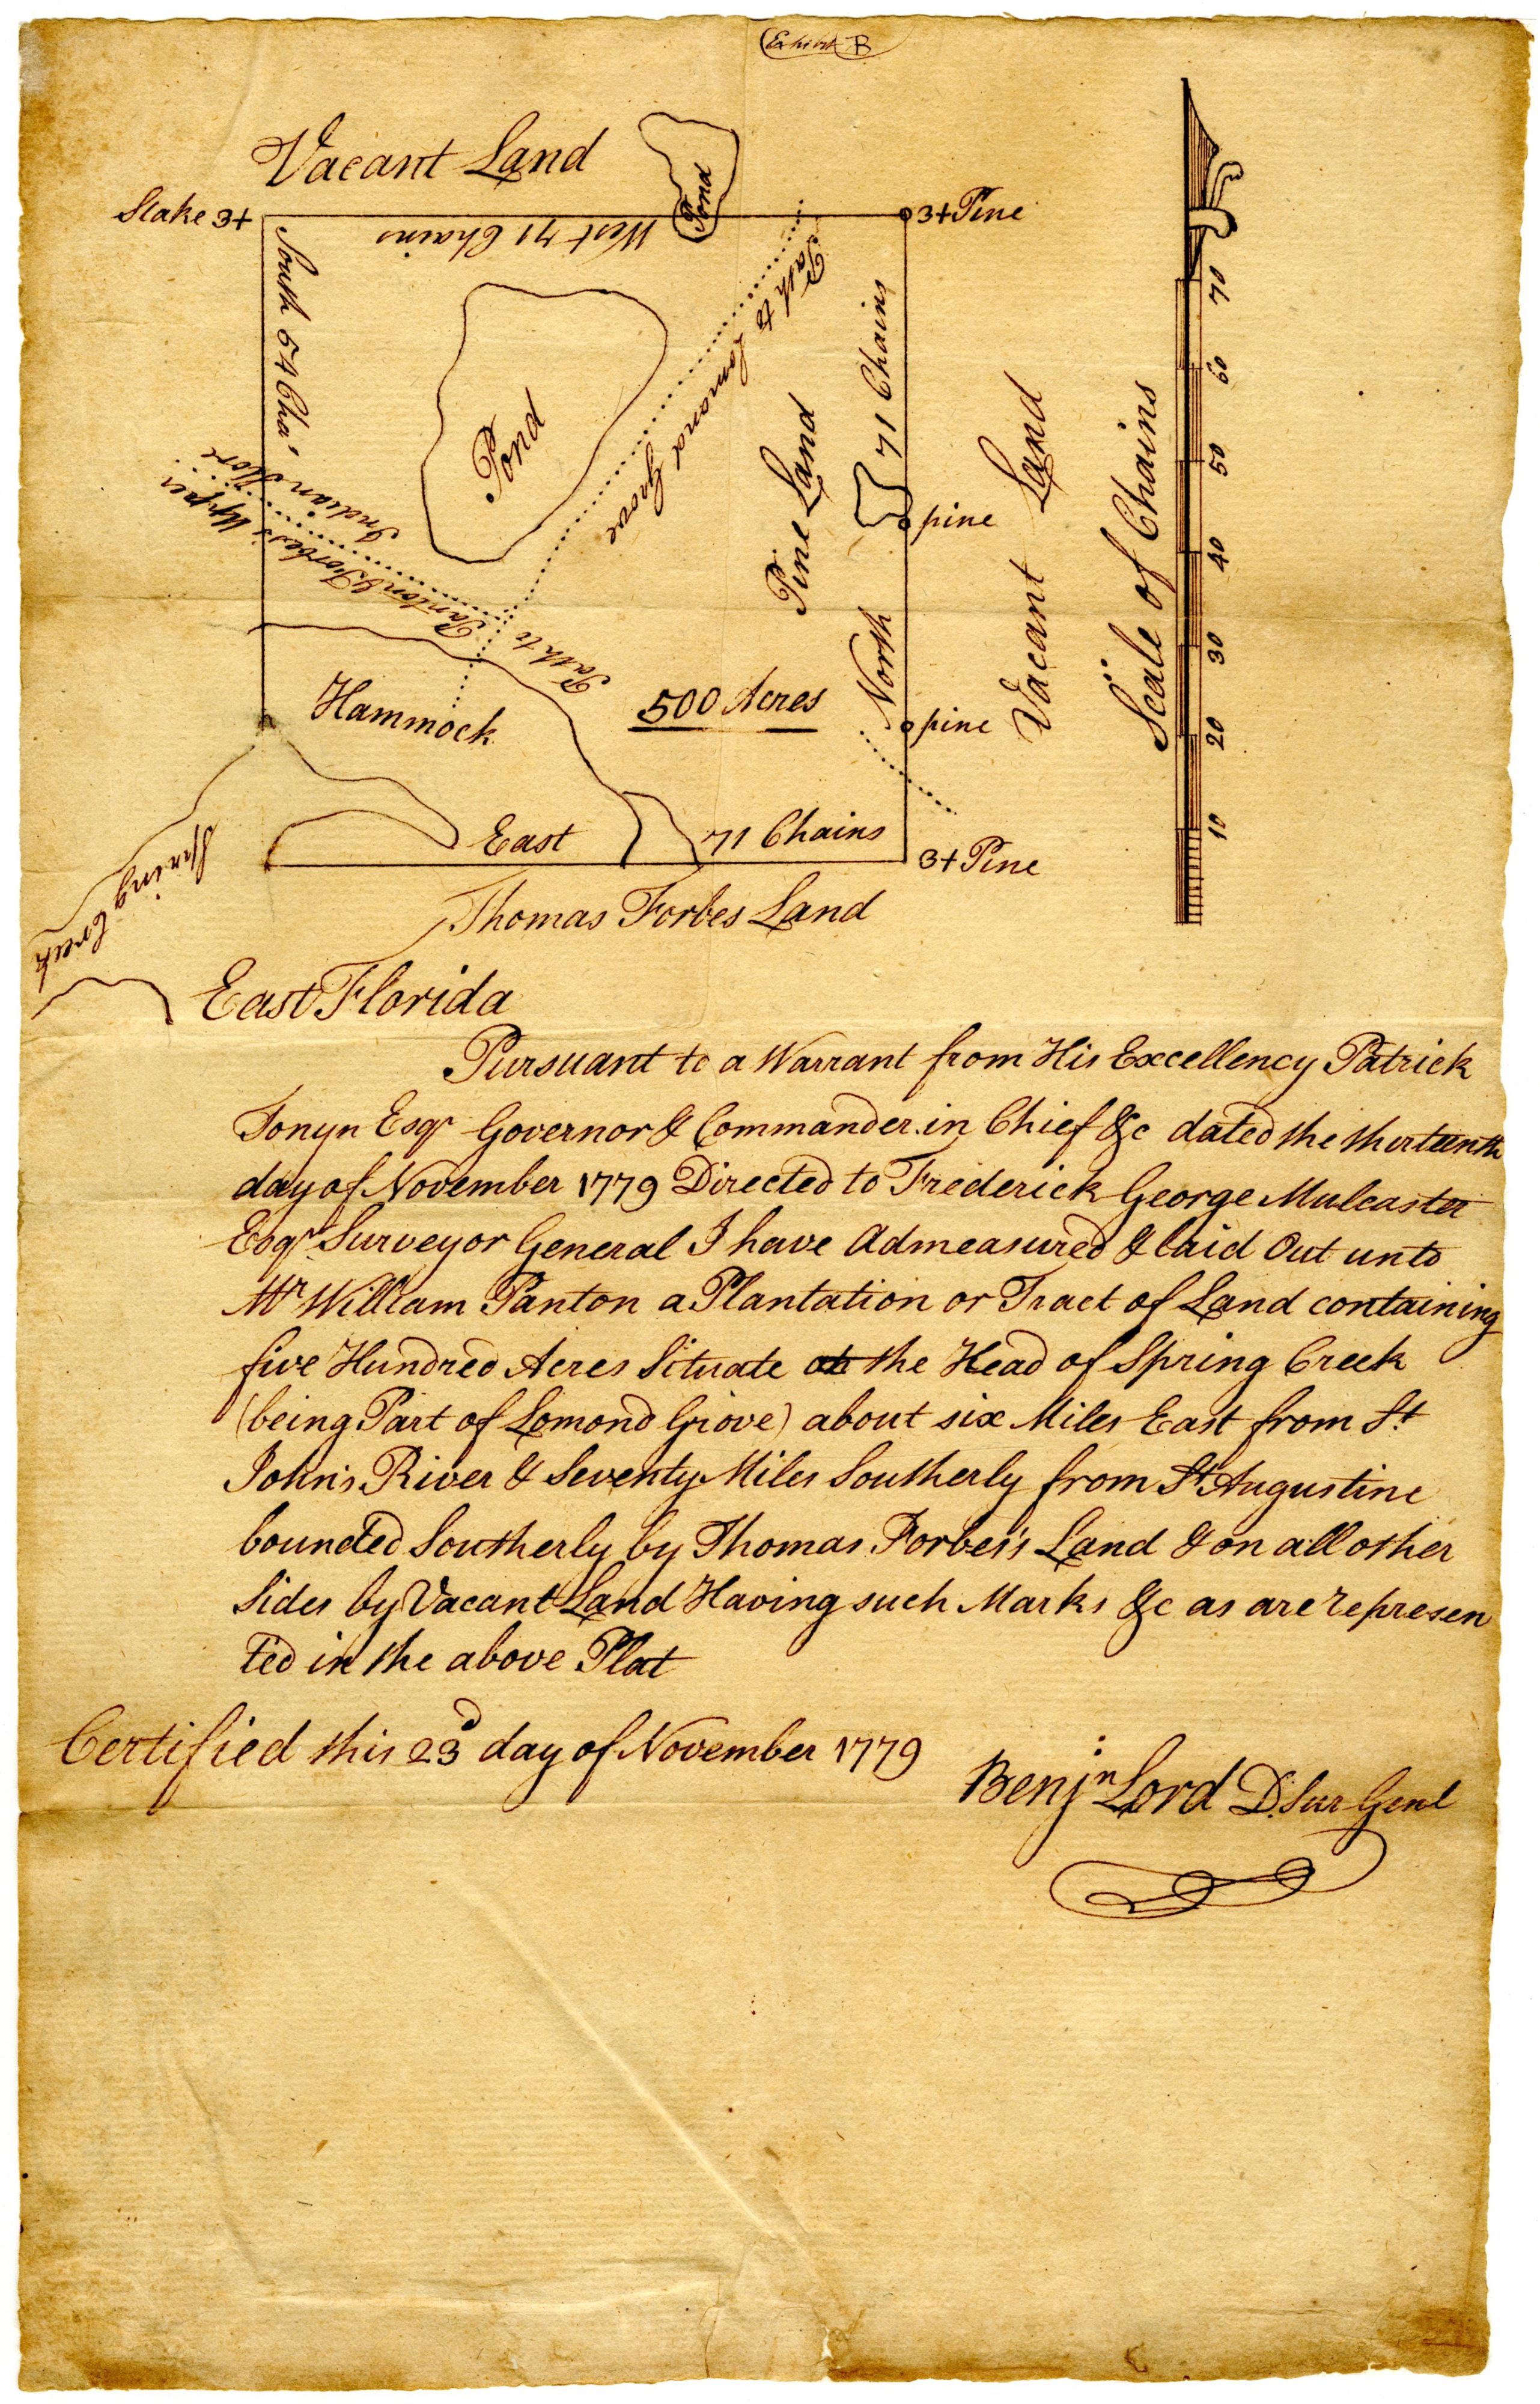 Exhibit B
Vacant Land
Pond
Stake 3+
3+ Pine
West 71 Chains
South 54 Cha.s
Path to Lomond Grove
Pond
71 Chains
North
Pine Land
Vacant Land
Scale of Chains
70
60
50
40
30
20
10
pine
pine
Path to Panton & Forbes's Upper
Indian Store
Hammock
500 Acres
East 71 Chains
3+ Pine
Spring Creek
Thomas Forbes Land
East Florida
Pursuant to a Warrant from His Excellency Patrick
Tonyn Esqr Governor & Commander in Chief &c dated the thirteenth
day of November 1779 Directed to Frederick George Mulcaster
Esqr Surveyor General I have Admeasured & laid Out unto
Mr William Panton a Plantation or Tract of Land containing
five Hundred Acres Situate at the Head of Spring Creek
(being Part of Lomond Grove) about six Miles East from St
John's River & Seventy Miles Southerly from St Augustine
bounded Southerly by Thomas Forbes's Land & on all other
Sides by Vacant Land Having such Marks &c as are represen
ted in the above Plat
Certified this 23d day of November 1779
Benjn Lord D. Sur Genl